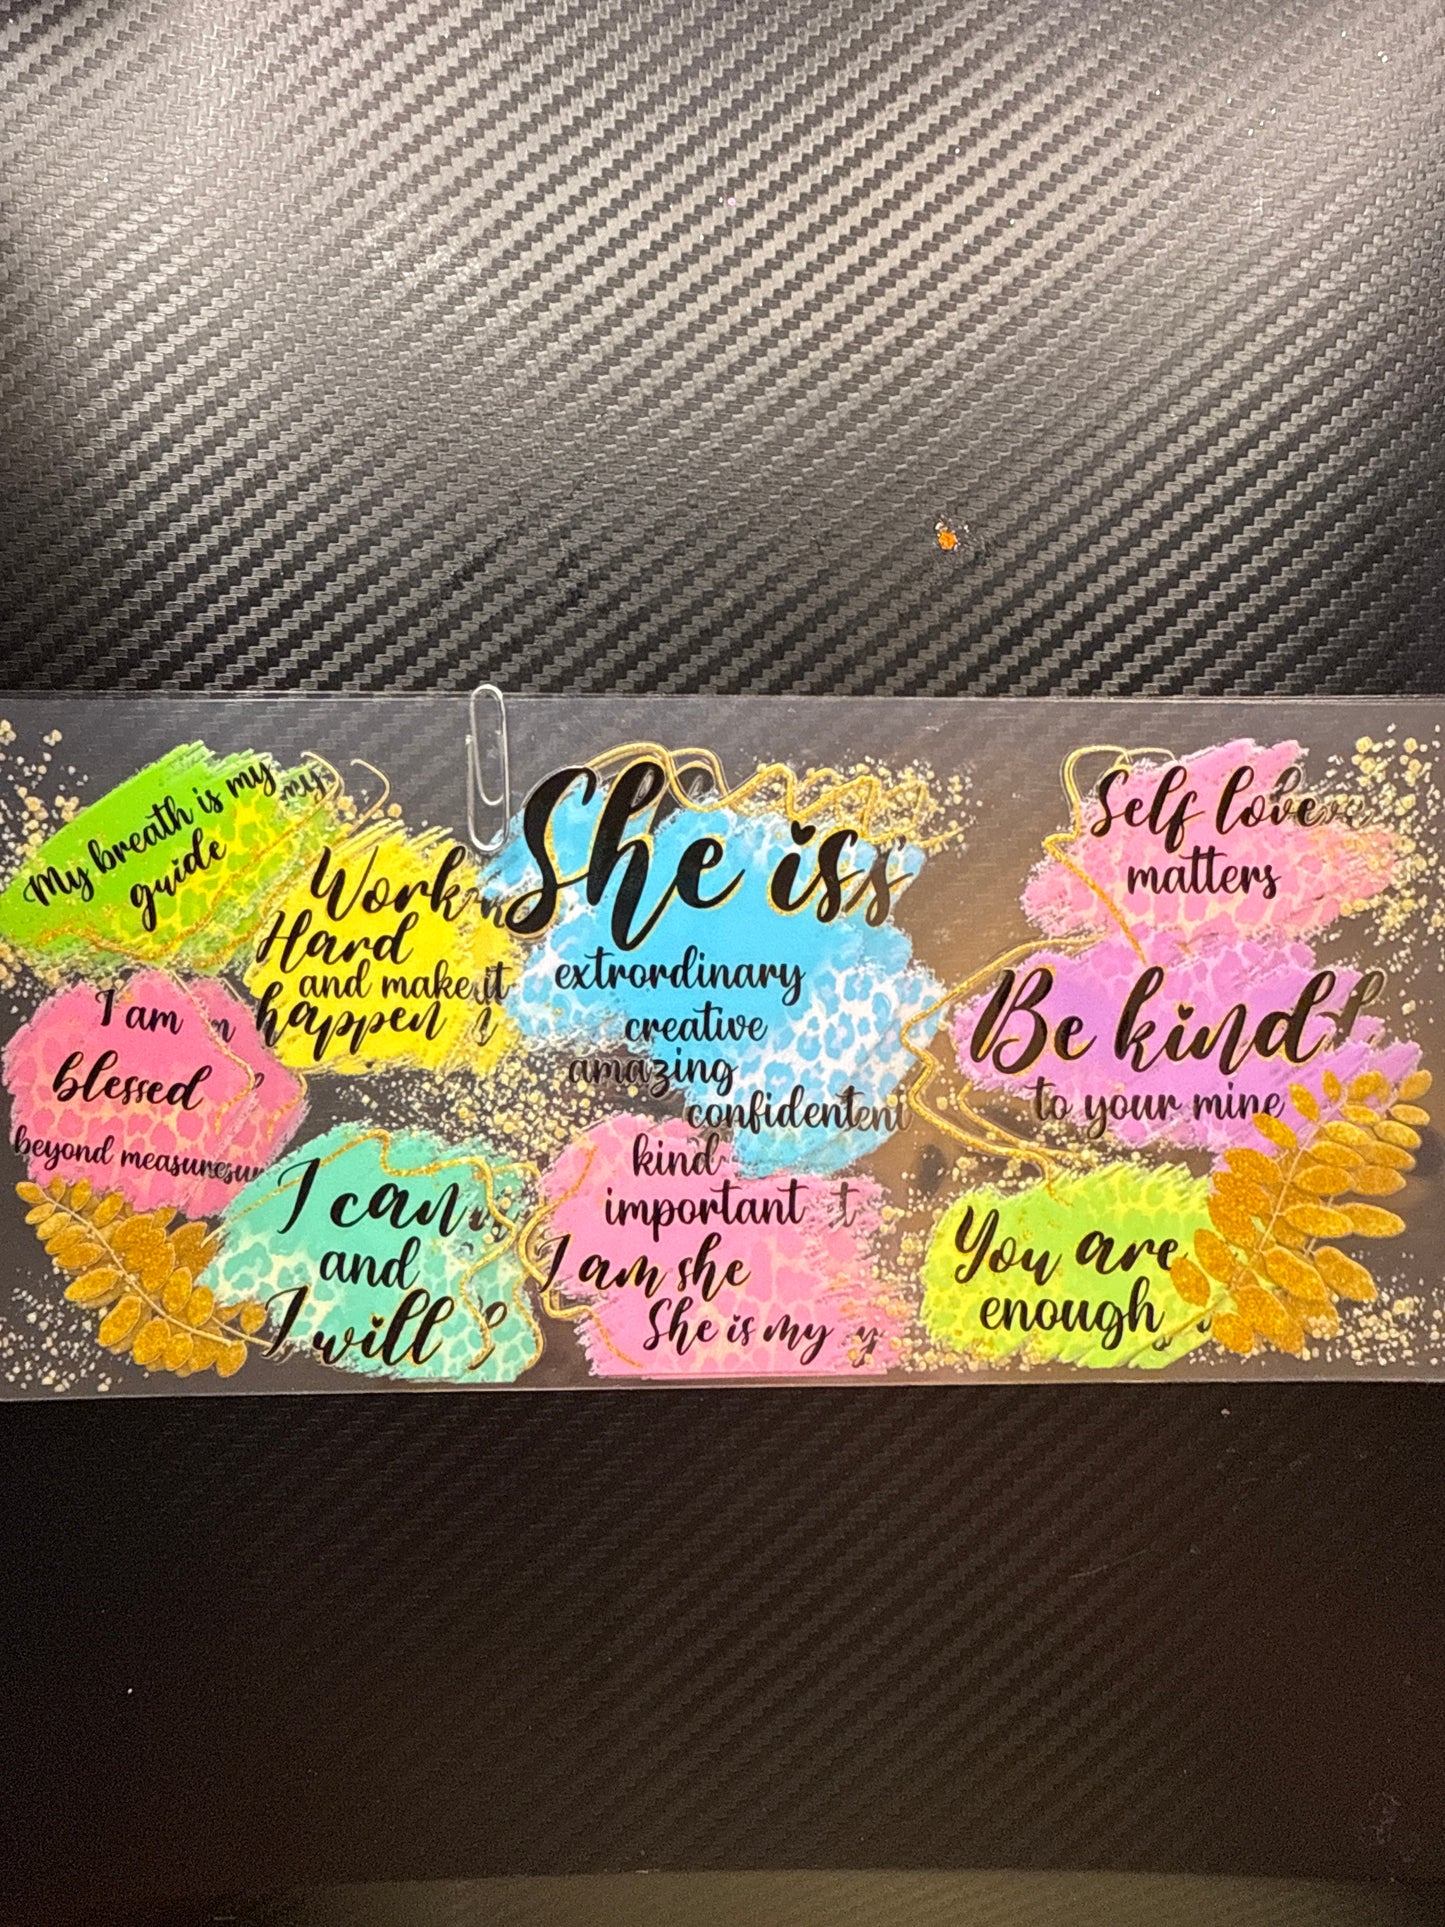 My breath is my
guide
Work
Hard
and make it
happen
I am
blessed
beyond measure
I can
and
I will
She is
extrordinary
creative
amazing
confident
kind
important
I am she
She is my
Self love
matters
Be kind
to your mine
You are
enough